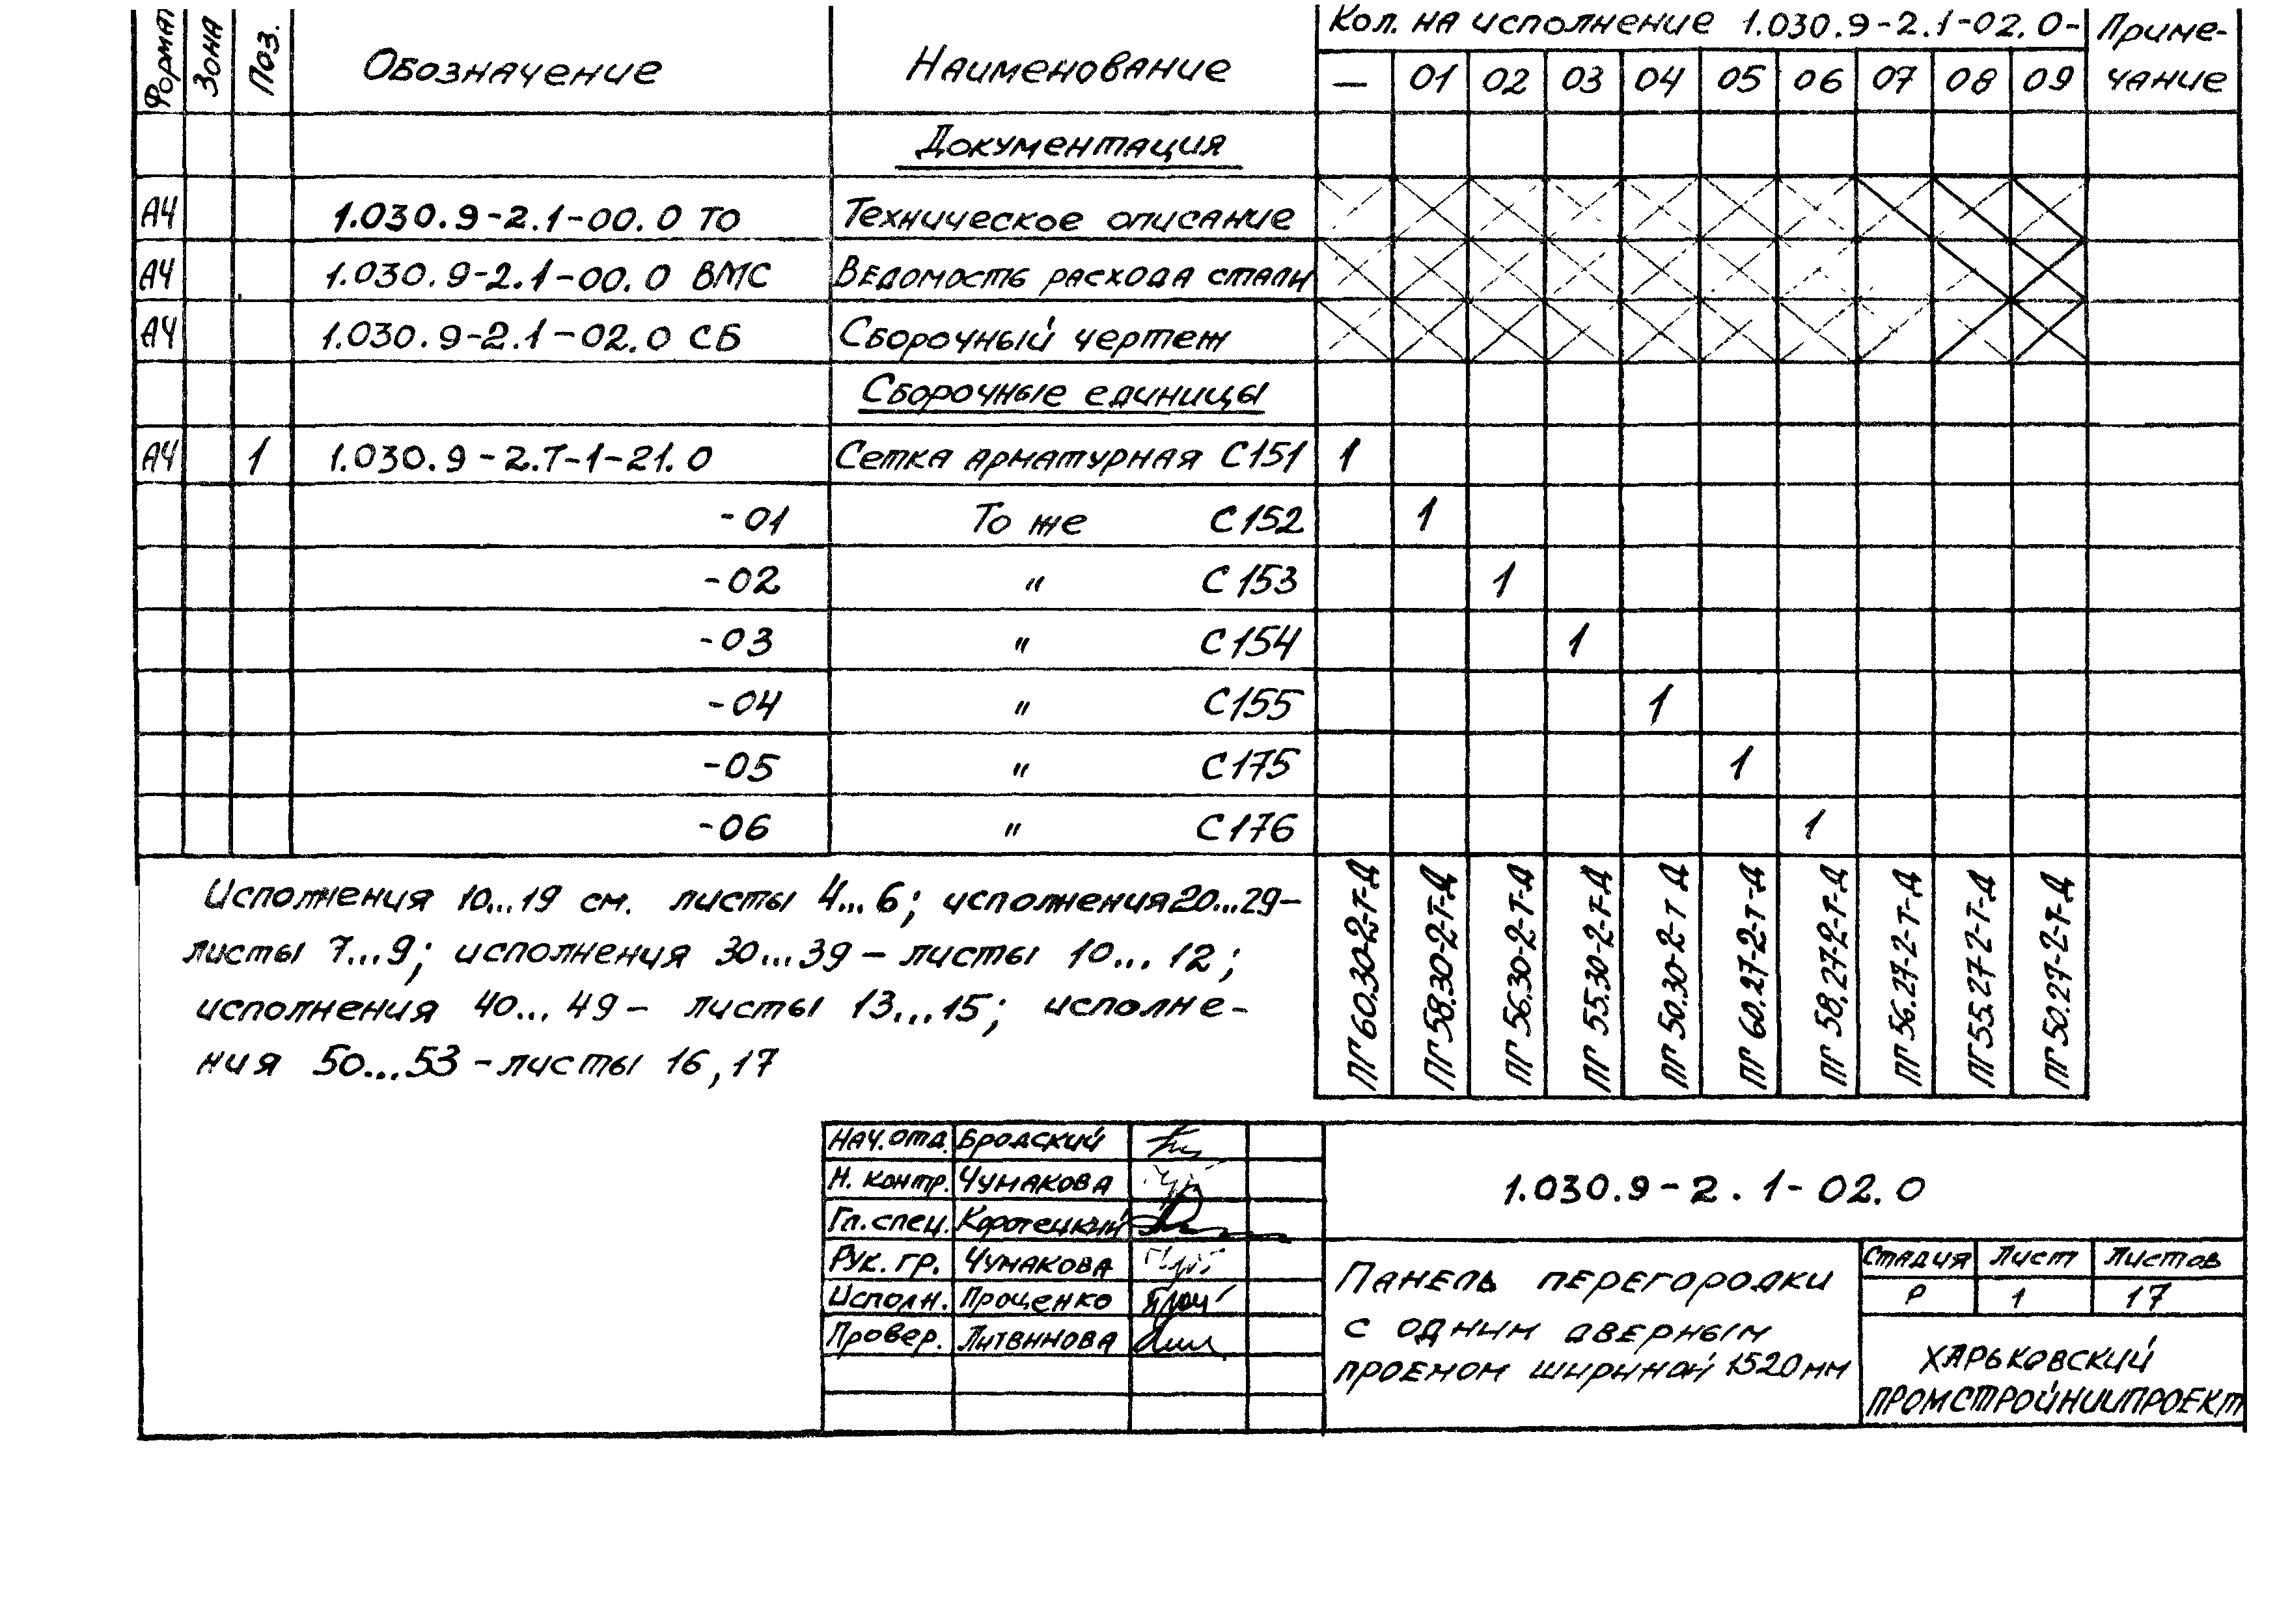 Формат Зона Поз. Обозначение Наименование Кол. на исполнение 1.030.9-2.1-02.0- Приме-
— 01 02 03 04 05 06 07 08 09 чание
Документация
А4 1.030.9-2.1-00.0 ТО Техническое описание
А4 1.030.9-2.1-00.0 ВМС Ведомость расхода стали
А4 1.030.9-2.1-02.0 СБ Сборочный чертеж
Сборочные единицы
А4 1 1.030.9-2.Т-1-21.0 Сетка арматурная С151 1
-01 То же С152 1
-02 " С153 1
-03 " С154 1
-04 " С155 1
-05 " С175 1
-06 " С176 1
ПГ60.30-2-Т-Д ПГ58.30-2-Т-Д ПГ56.30-2-Т-Д ПГ55.30-2-Т-Д ПГ50.30-2-Т Д ПГ60.27-2-Т-Д ПГ58.27-2-Т-Д ПГ56.27-2-Т-Д ПГ55.27-2-Т-Д ПГ50.27-2-Т-Д
Исполнения 10...19 см. листы 4...6; исполнения 20...29-
листы 7...9; исполнения 30...39 - листы 10...12;
исполнения 40...49 - листы 13...15; исполне-
ния 50...53 - листы 16,17
Нач.отд. Бродский
Н. контр. Чумакова
Гл.спец. Коротецкий
Рук. гр. Чумакова
Исполн. Проценко
Провер. Литвинова
1.030.9-2.1-02.0
Панель перегородки
с одним дверным
проемом шириной 1520мм
Стадия Лист Листов
Р 1 17
ХАРЬКОВСКИЙ
ПРОМСТРОЙНИИПРОЕКТ